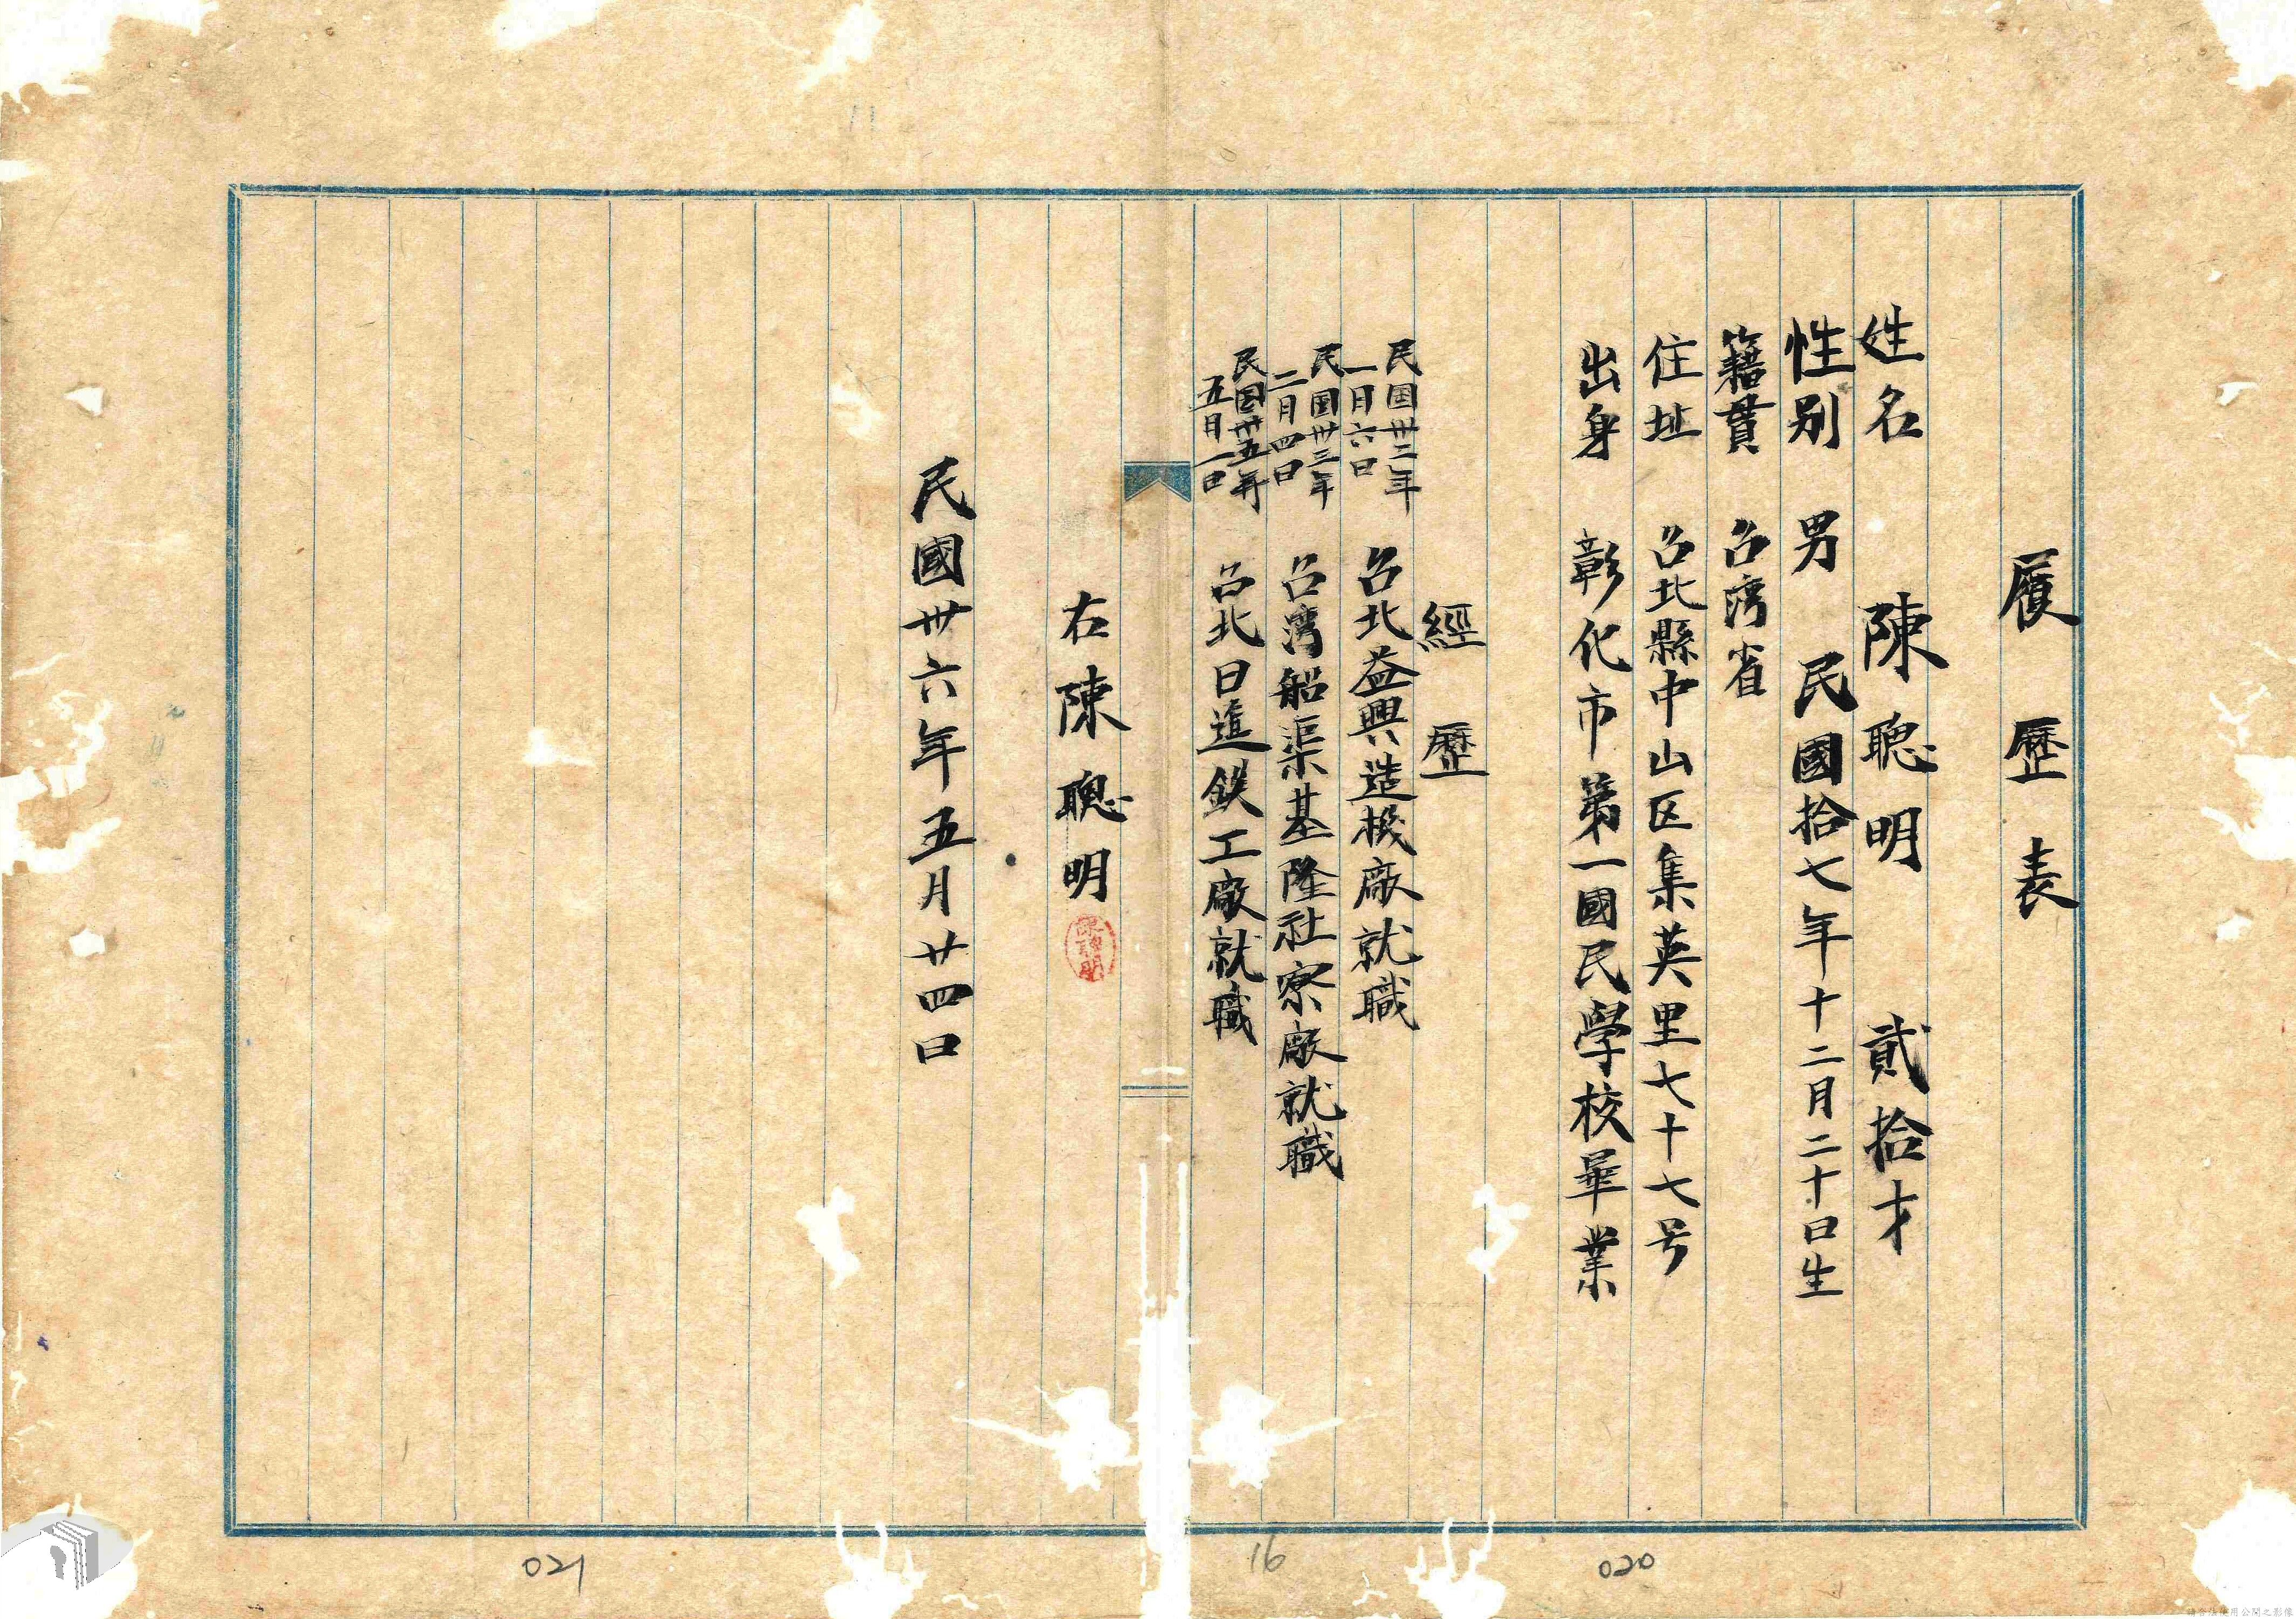 履歷表
姓名 陳聰明 貳拾才
性别 男 民國拾七年十二月二十日生
籍貫 台湾省
住址 台北縣中山区集英里七十七号
出身 彰化市第一國民學校畢業
經歷
民国卅二年一日六日 台北益興造机廠就職
民国卅三年二月四日 台湾船渠基隆社寮廠就職
民国卅五年五月一日 台北日進鉄工廠就職
右陳聰明
陳聰明
民國卅六年五月廿四日
020
16
021